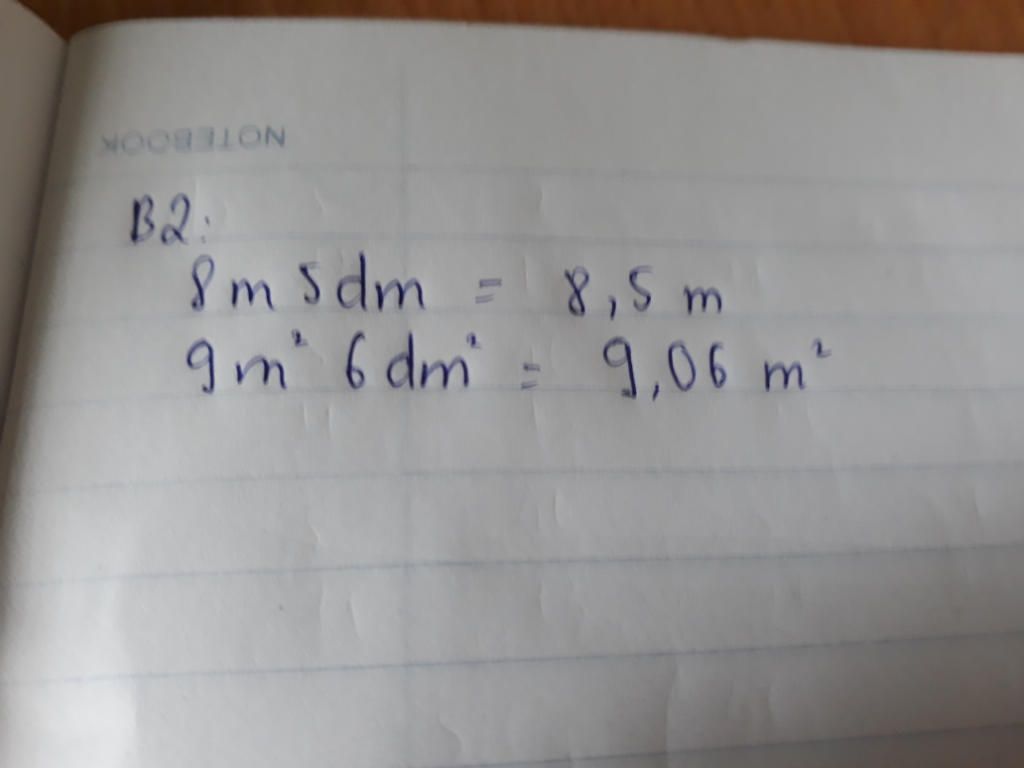 NOTEBOOK
B2:
8m 5dm = 8,5 m
9m² 6dm² = 9,06 m²